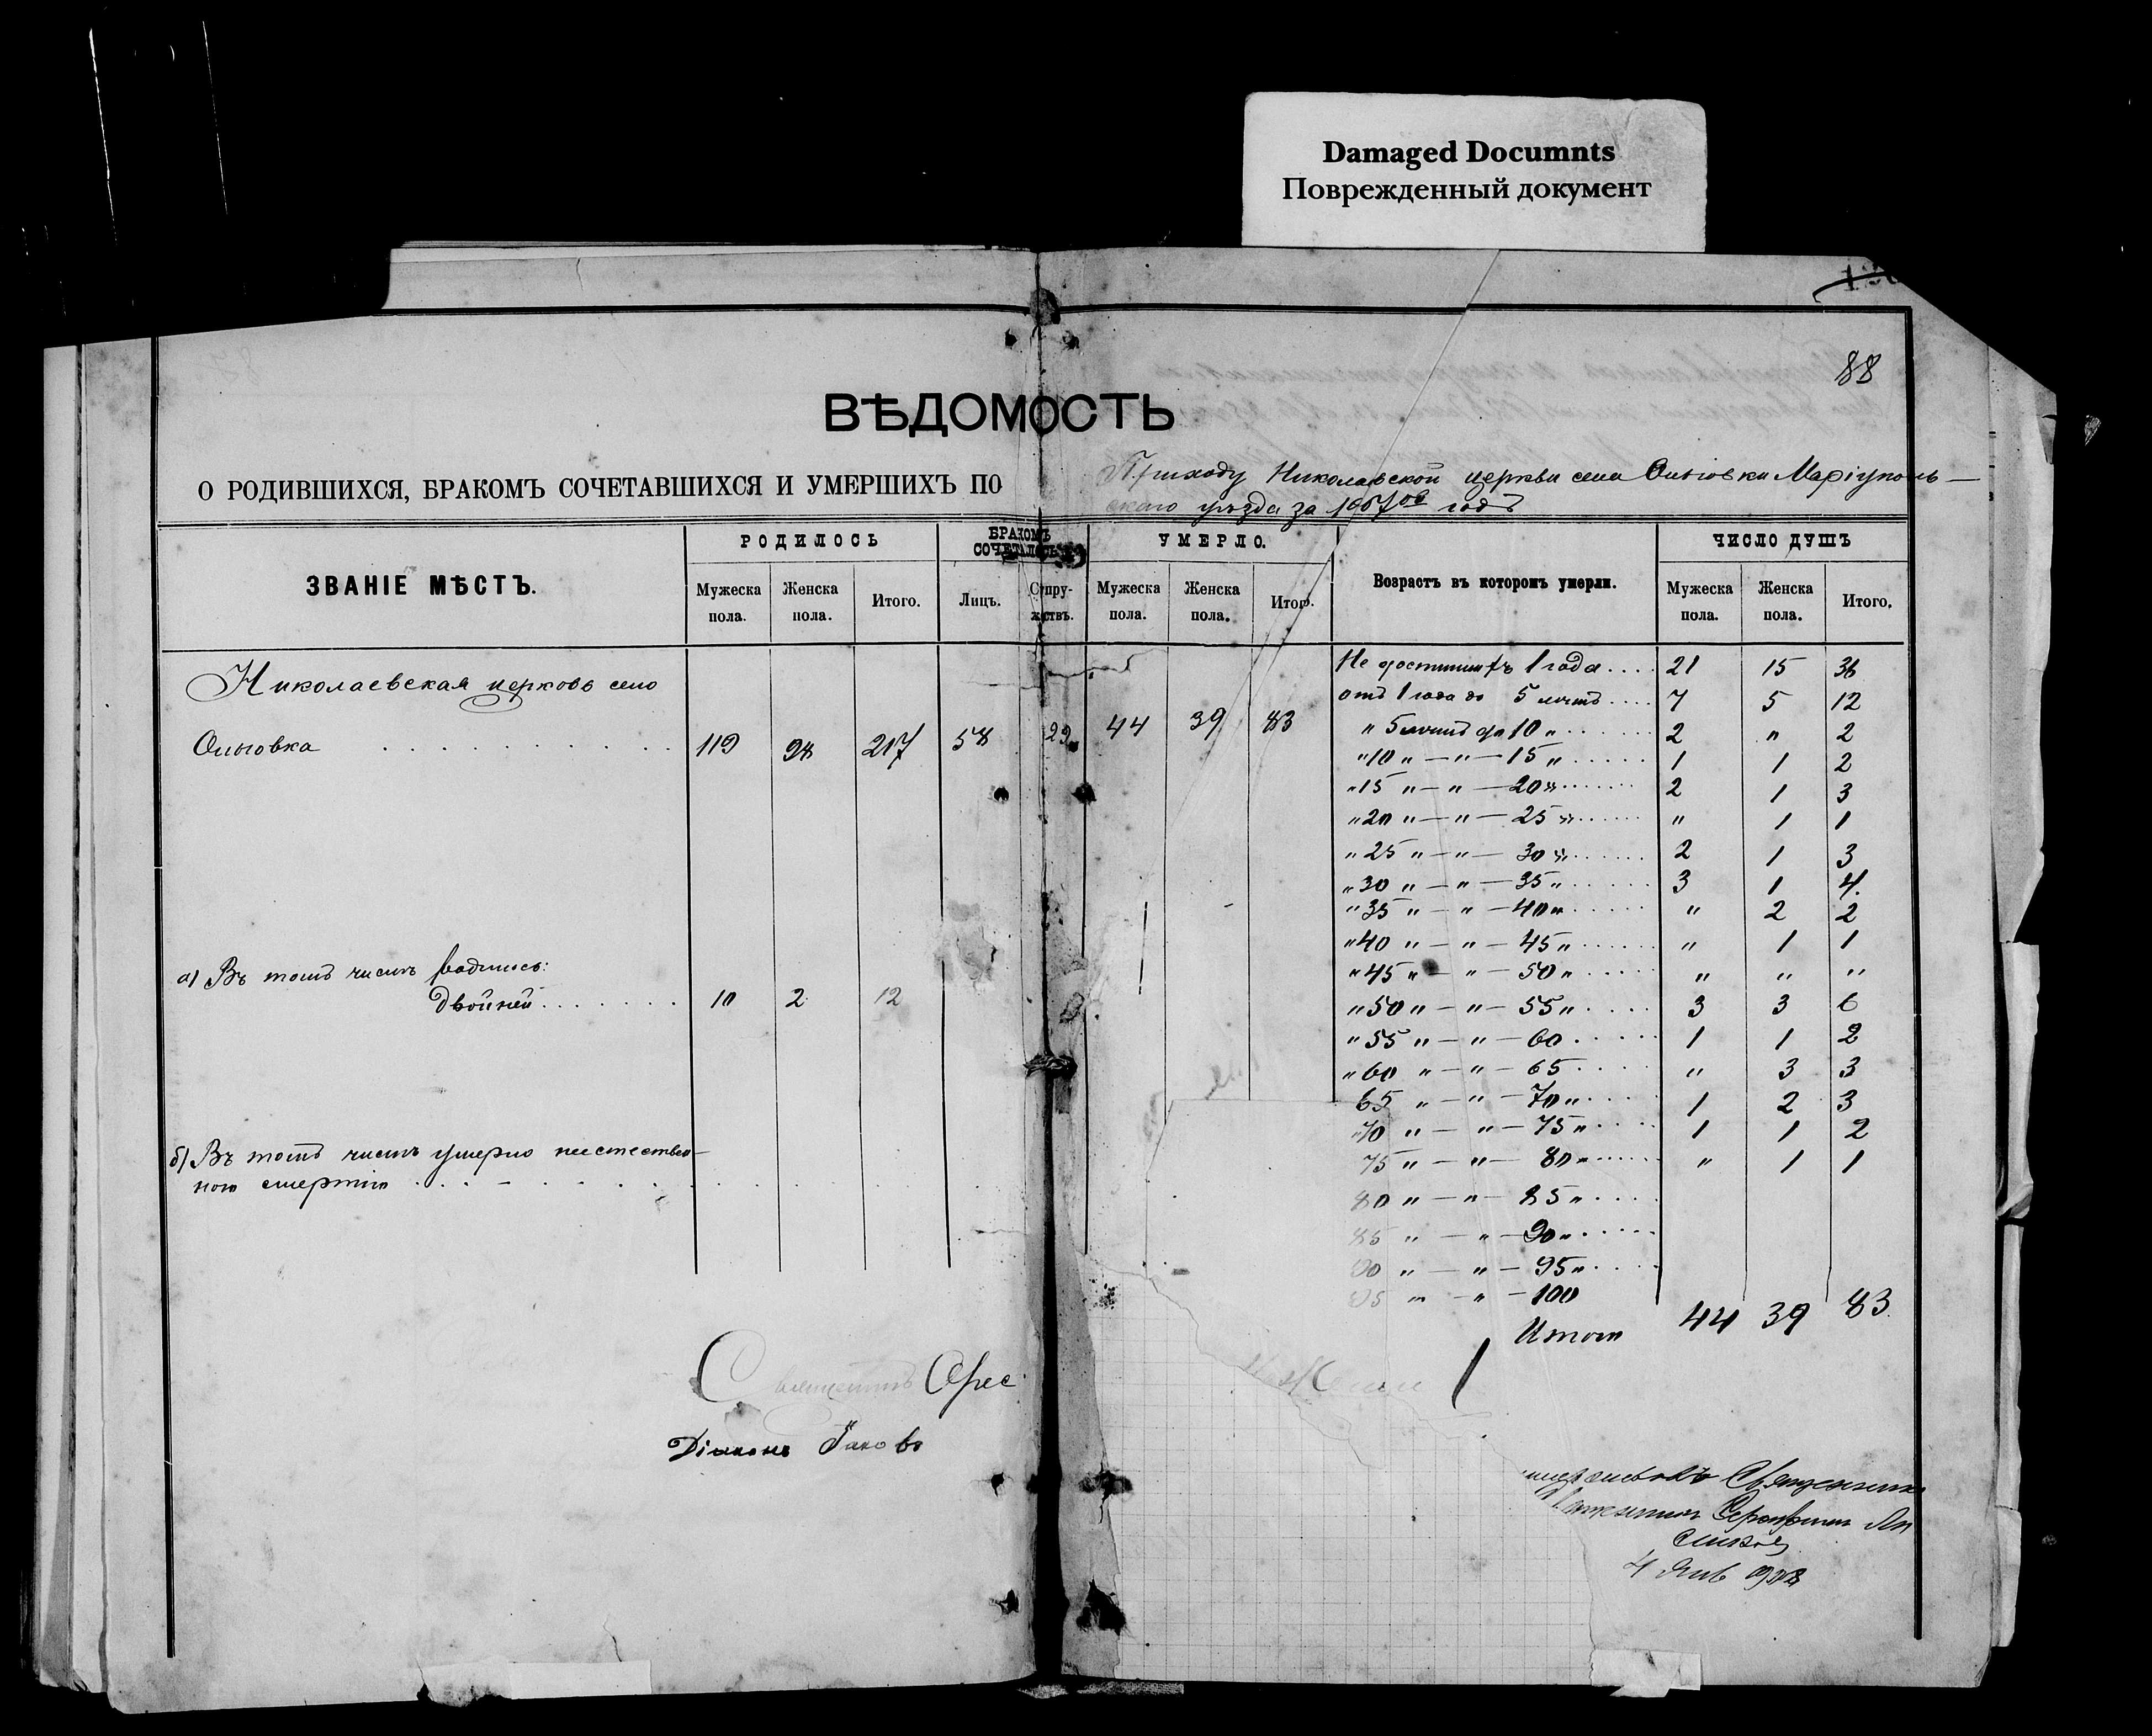 Damaged Documnts
Поврежденный документ
88
ВѢДОМОСТЬ
О РОДИВШИХСЯ, БРАКОМЪ СОЧЕТАВШИХСЯ И УМЕРШИХЪ ПО Приходу Николаевской церкви села Ольговки Маріуполь-
скаго уѣзда за годъ
ЗВАНІЕ МѢСТЪ. РОДИЛОСЬ БРАКОМЪ СОЧЕТАЛОСЬ УМЕРЛО. Возрастъ въ которомъ умерли. ЧИСЛО ДУШЪ
Мужеска пола. Женска пола. Итого. Лицъ. Супружствъ. Мужеска пола. Женска пола. Итого. Мужеска пола. Женска пола. Итого.
Николаевская церковь село
Ольговка 119 98 217 58 29 44 39 83
а) Въ томъ числѣ родилось:
Двойней 10 2 12
б) Въ томъ числѣ умерло неестествен-
ною смертію
Не достигшихъ 1 года 21 15 36
отъ 1 года до 5 лѣтъ 7 5 12
" 5 лѣтъ до 10 " 2 " 2
" 10 " — " — 15 " 1 1 2
" 15 " — " — 20 " 2 1 3
" 20 " — " — 25 " " 1 1
" 25 " — " — 30 " 2 1 3
" 30 " — " — 35 " 3 1 4.
" 35 " — " — 40 " " 2 2
" 40 " — " — 45 " " 1 1
" 45 " — " — 50 " " " "
" 50 " — " — 55 " 3 3 6
" 55 " — " — 60 1 1 2
" 60 " — " — 65 " 3 3
65 " — " — 70 " 1 2 3
" 70 " — " — 75 " 1 1 2
75 " — " — 80 " " 1 1
80 " — " — 85 "
85 " — " — 90 "
90 " — " — 95 "
95 " — " — 100
Итого 44 39 83
Священникъ Орес
Діаконъ Іаковъ
Священник
4 Янв 1908